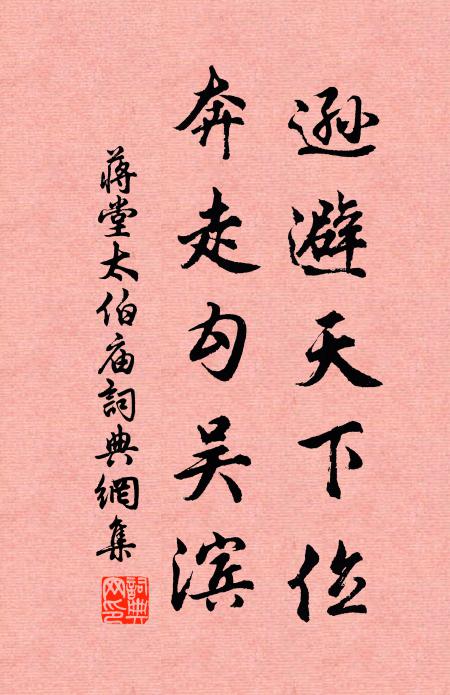 逊避天下位
奔走勾吴滨
蒋堂太伯庙詞典網集
詞典网